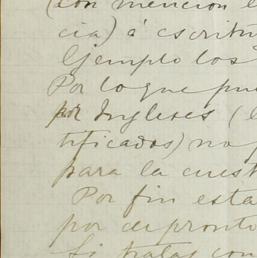 (con mencion e
cia) á escritu
Ejemplo los
Por lo que pue
por Ingleses (l
tificados) no p
para la cuest
Por fin esta
por de pronto
Si tratas con